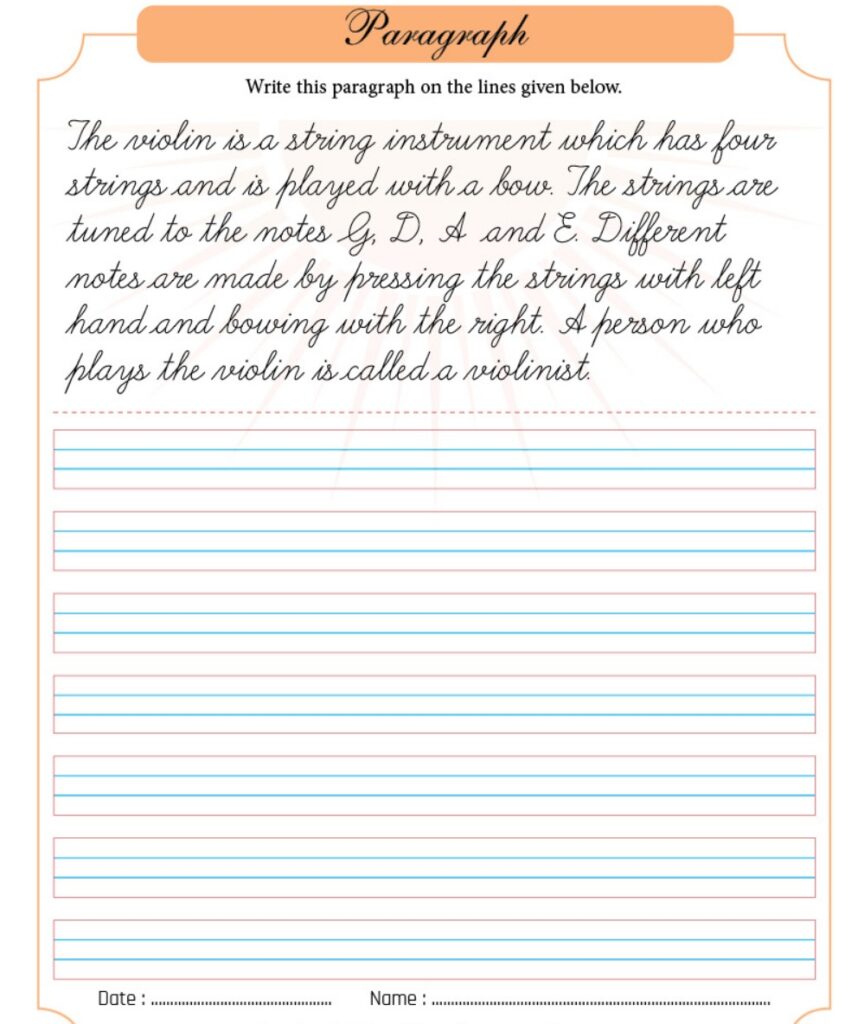 Paragraph
Write this paragraph on the lines given below.
The violin is a string instrument which has four
strings and is played with a bow. The strings are
tuned to the notes G, D, A and E. Different
notes are made by pressing the strings with left
hand and bowing with the right. A person who
plays the violin is called a violinist.
Date : ............................................... Name : .........................................................................................